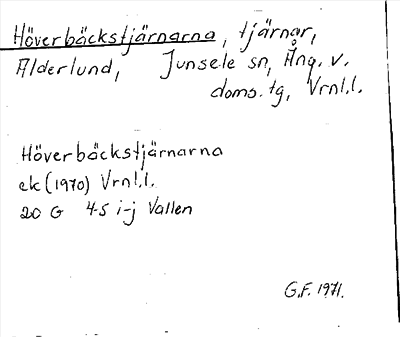 Höverbäckstjärnarna, tjärnar,
Alderlund, Junsele sn, Ång. v.
doms. tg, Vrnl.l.
Höverbäckstjärnarna
ek (1970) Vrnl.l.
20 G 4-5 i-j Vallen
G.F. 1971.